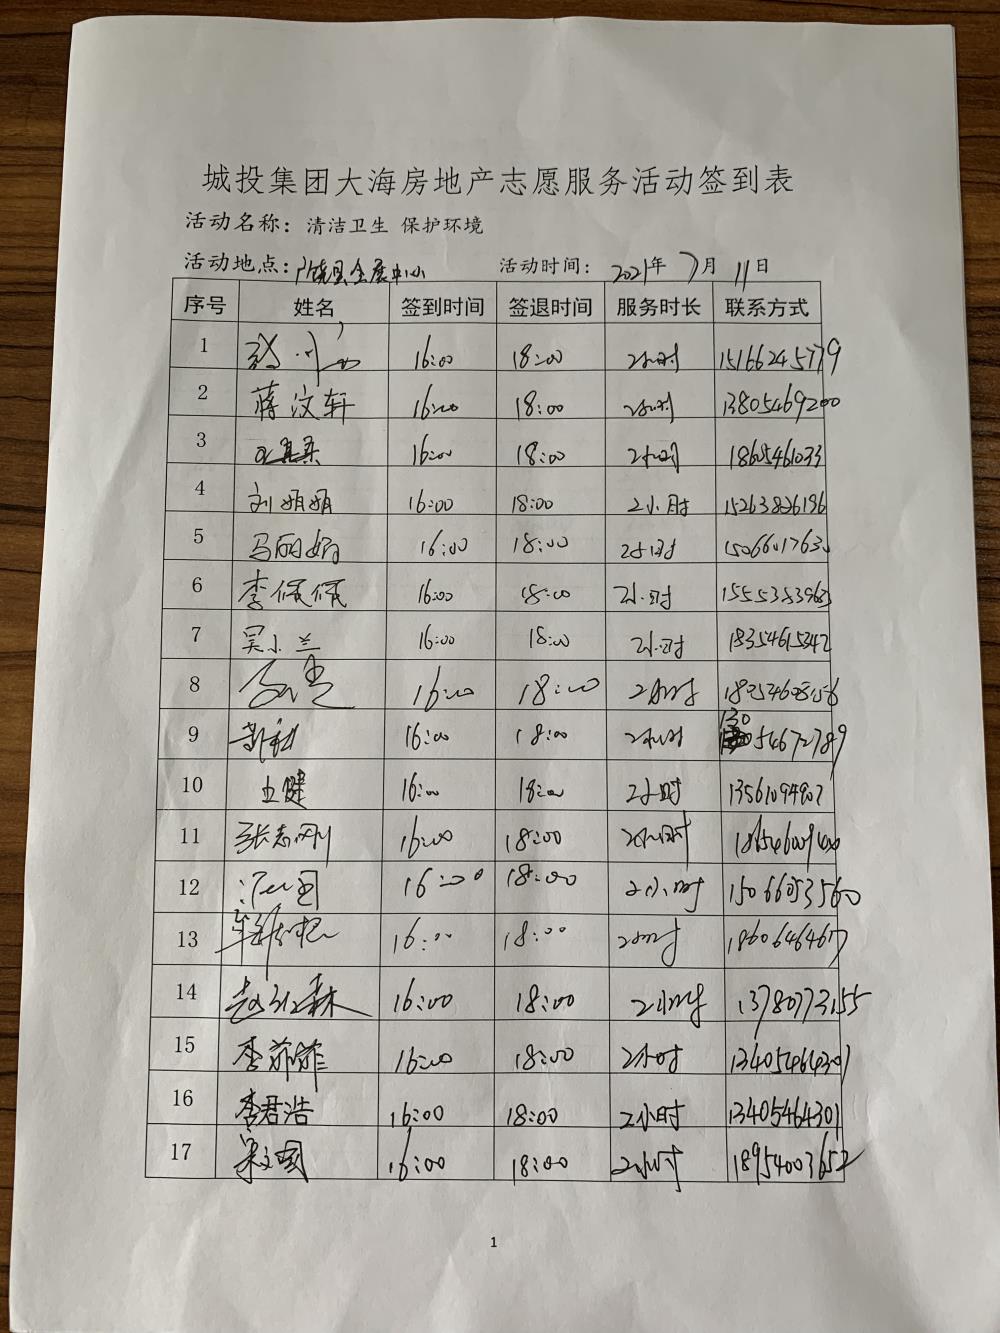 城投集团大海房地产志愿服务活动签到表
活动名称：清洁卫生 保护环境
活动地点：广饶县会展中心 活动时间：2021年 7月 11日
序号 姓名 签到时间 签退时间 服务时长 联系方式
1 16:00 18:00 2小时 15166245779
2 蒋汶轩 16:00 18:00 2小时 13805469200
3 16:00 18:00 2小时 18605461033
4 刘娟娟 16:00 18:00 2小时 15263826196
5 马丽娟 16:00 18:00 2小时
6 李媛媛 16:00 18:00 2小时
7 吴小兰 16:00 18:00 2小时 18354615342
8 16:00 18:00 2小时
9 16:00 18:00 2小时 13054672789
10 王健 16:00 18:00 2小时
11 张志刚 16:00 18:00 2小时
12 16:00 18:00 2小时 15066053560
13 16:00 18:00 2小时
14 16:00 18:00 2小时 13780773155
15 李菲菲 16:00 18:00 2小时 13405464301
16 李君浩 16:00 18:00 2小时 13405464301
17 梁文国 16:00 18:00 2小时 18954003652
1